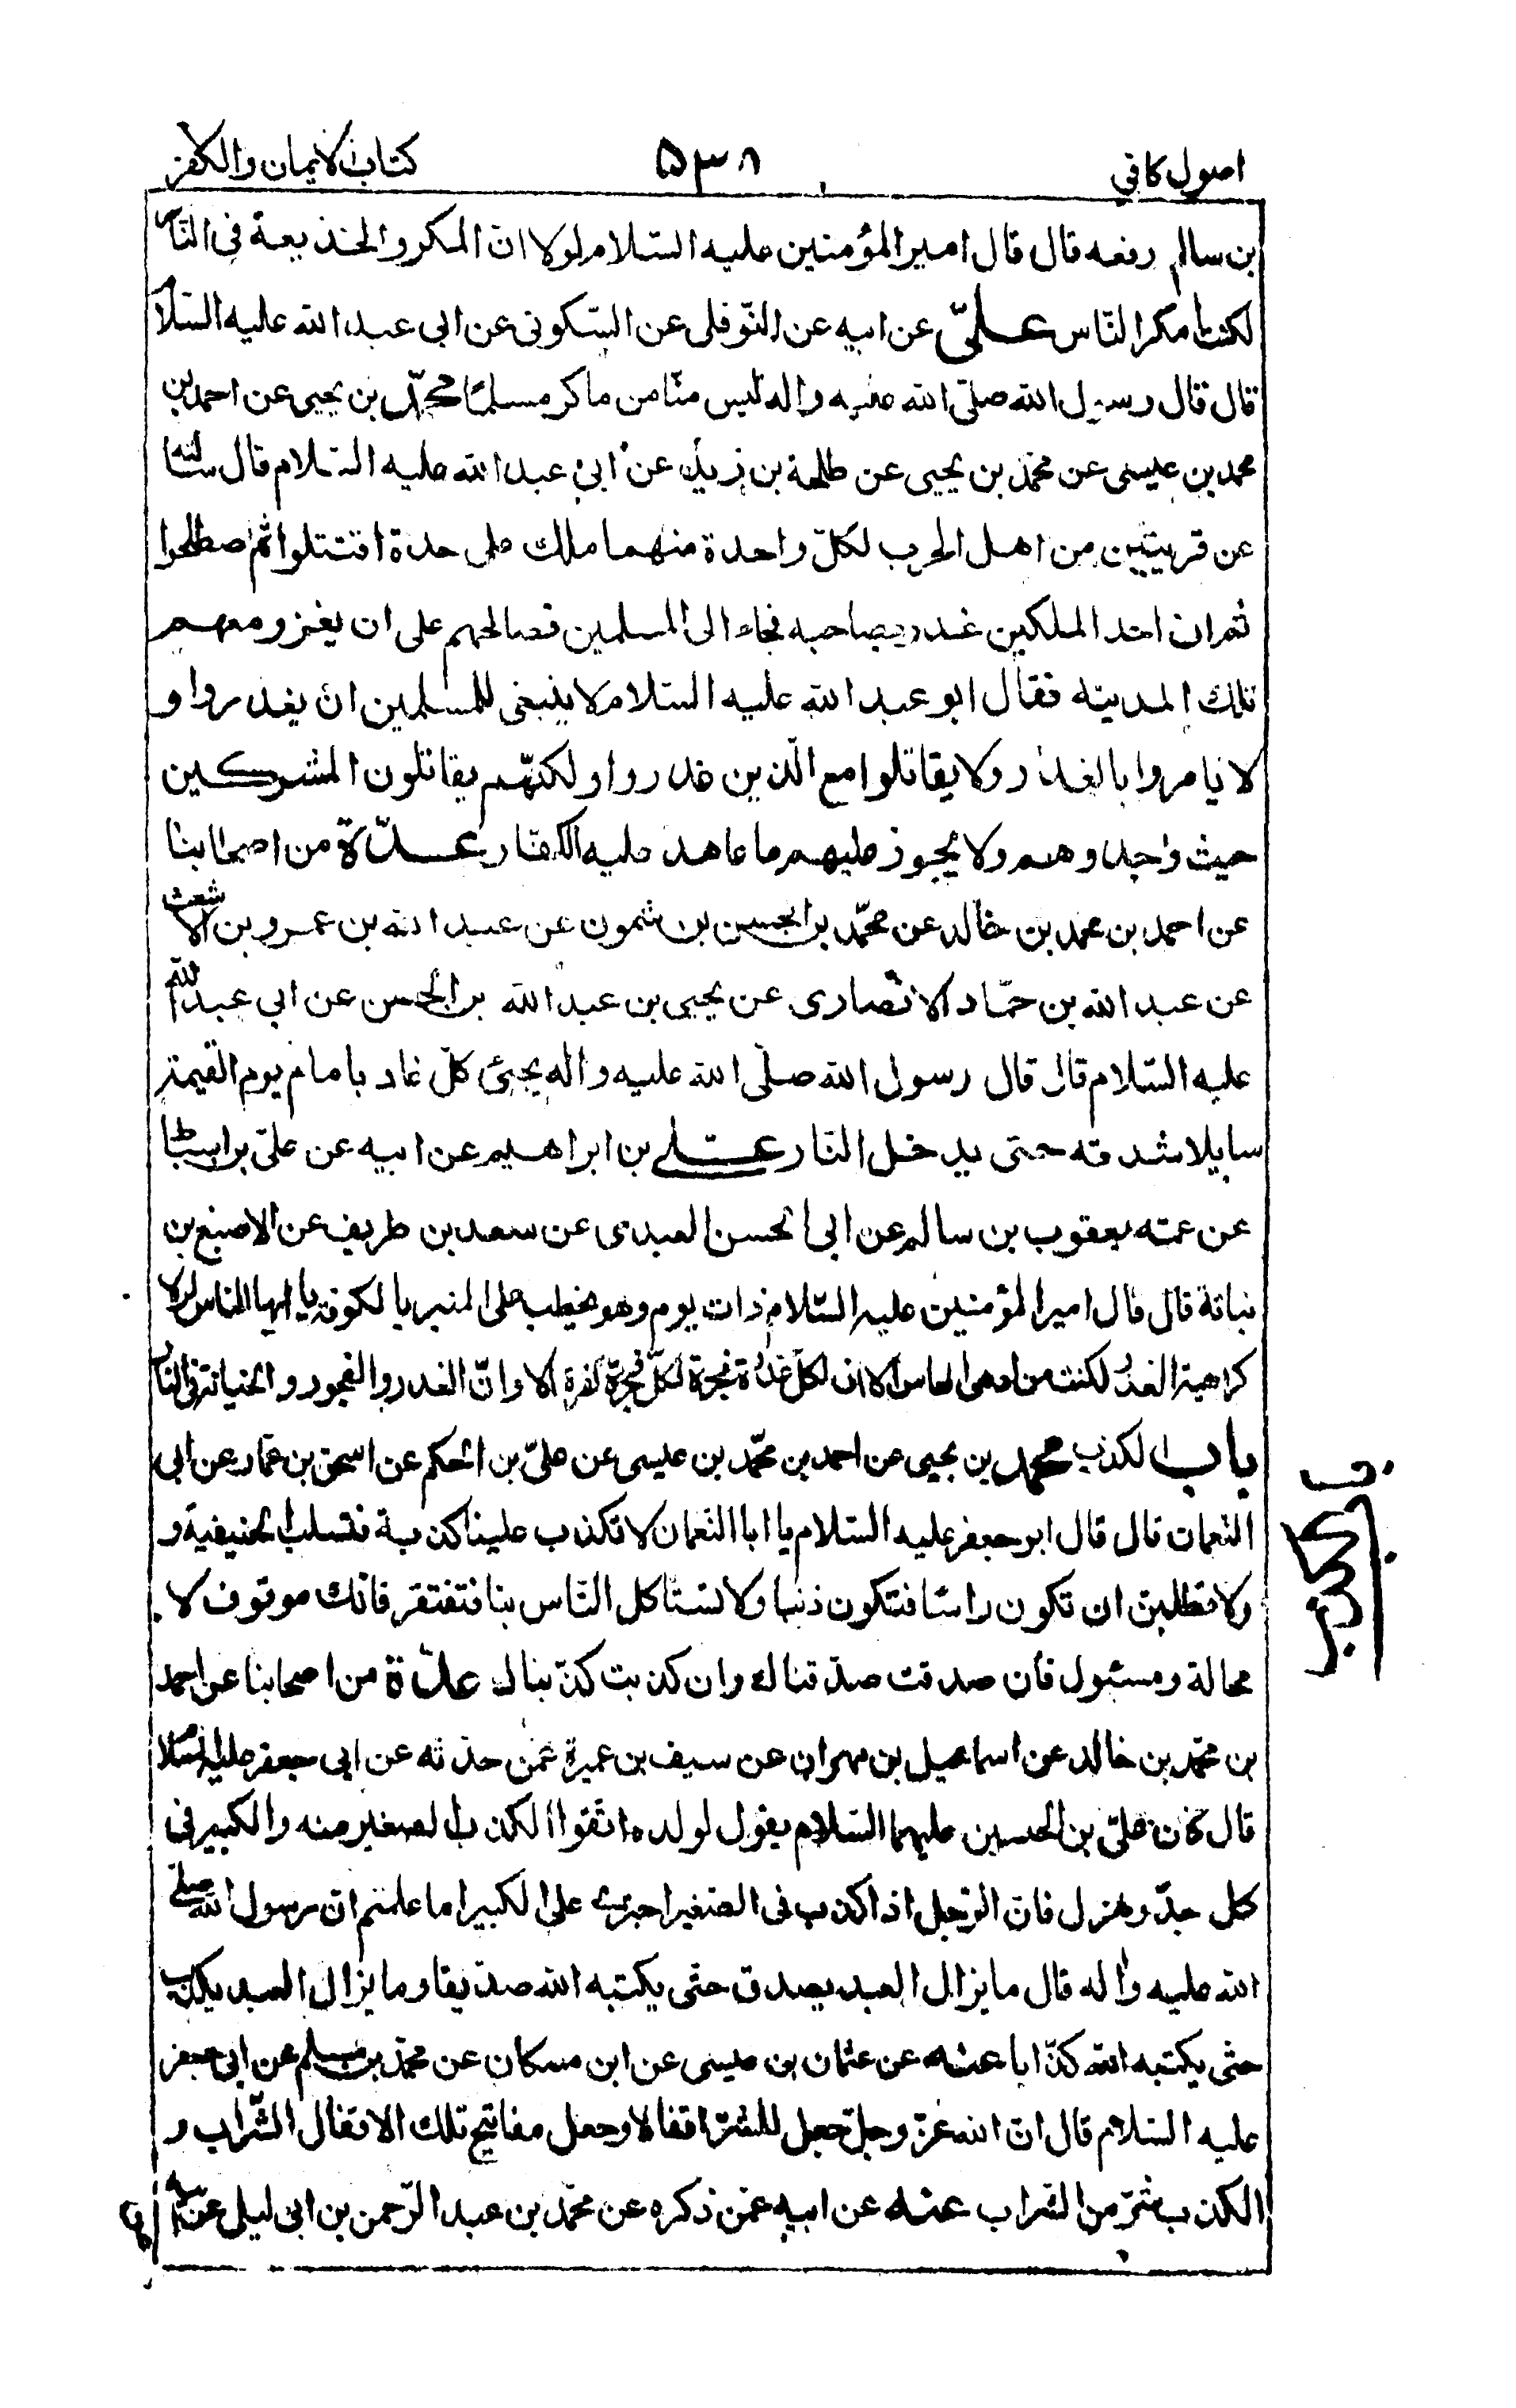 اصول كافي ۵۳۸ كتاب الايمان والكفر
بن سالم رفعه قال قال امير المؤمنين عليه السّلام لولا انّ المكر والخذيعة فى النّاس
لكنت امكر النّاس علىّ عن ابيه عن النّوفلى عن السّكونى عن ابى عبد الله عليه السّلام
قال قال رسول الله صلّى الله عليه واله ليس منّا من ماكر مسلمًا محمّد بن يحيى عن احمد بن
محمد بن عيسى عن محمّد بن يحيى عن طلحة بن زيد عن ابى عبد الله عليه السّلام قال سالته
عن قريتين من اهل الحرب لكلّ واحدة منهما ملك على حدة اقتتلوا ثم اصطلحوا
ثمّ ان احد الملكين غدر بصاحبه فجاء الى المسلمين فصالحهم على ان يغزو معهم
تلك المدينة فقال ابو عبد الله عليه السّلام لا ينبغى للمسلمين ان يغدروا و
لا يامروا بالغدر ولا يقاتلوا مع الّذين غدروا ولكنّهم يقاتلون المشركين
حيث وجدوهم ولا يجوز عليهم ما عاهد عليه الكفّار عدّة من اصحابنا
عن احمد بن محمد بن خالد عن محمّد بن الحسن بن شمون عن عبد الله بن عمرو بن الاشعث
عن عبد الله بن حمّاد الانصارى عن يحيى بن عبد الله بن الحسن عن ابى عبد الله
عليه السّلام قال قال رسول الله صلّى الله عليه واله يجىء كلّ غادر بامام يوم القيمة
مايلا شدقه حتى يدخل النّار علىّ بن ابراهيم عن ابيه عن علىّ بن اسباط
عن عمّه يعقوب بن سالم عن ابى الحسن العبدى عن سعد بن طريف عن الاصبغ بن
نباتة قال قال امير المؤمنين عليه السّلام ذات يوم وهو يخطب على المنبر بالكوفة يا ايها الناس لولا
كراهية الغدر لكنت من ادهى الناس الا ان لكلّ غدرة فجرة لكلّ فجرة كفرة الا وانّ الغدر والفجور والخيانة فى النّار
باب الكذب محمد بن يحيى عن احمد بن محمّد بن عيسى عن علىّ بن الحكم عن اسحق بن عمّار عن ابى
النّعمان قال قال ابو جعفر عليه السّلام يا ابا النّعمان لا تكذب علينا كذبة فتسلب الحنيفية و
ولا تطلبن ان تكون راسًا فتكون ذنبا ولا تستاكل النّاس بنا فتفتقر فانّك موقوف لا
محالة ومسئول فان صدقت صدّقناك وان كذبت كذّبناك عدّة من اصحابنا عن احمد
بن محمّد بن خالد عن اسماعيل بن مهران عن سيف بن عميرة عمّن حدّثه عن ابى جعفر عليه السّلام
قال كان علىّ بن الحسين عليهما السّلام يقول لولده اتّقوا الكذب الصغير منه والكبير فى
كل جدّ وهزل فانّ الرّجل اذا كذب فى الصّغير اجترئ على الكبير اما علمتم ان رسول الله صلّى
الله عليه واله قال ما يزال العبد يصدق حتّى يكتبه الله صدّيقا وما يزال العبد يكذب
حتّى يكتبه الله كذّابا عنه عن عثمان بن عيسى عن ابن مسكان عن محمّد بن مسلم عن ابى جعفر
عليه السّلام قال انّ الله عزّ وجلّ جعل للشّرّ اقفالا وجعل مفاتيح تلك الاقفال الشّراب و
الكذب شرّ من الشراب عنه عن ابيه عمّن ذكره عن محمّد بن عبد الرّحمن بن ابى ليلى عن ابيه
باب الكذب